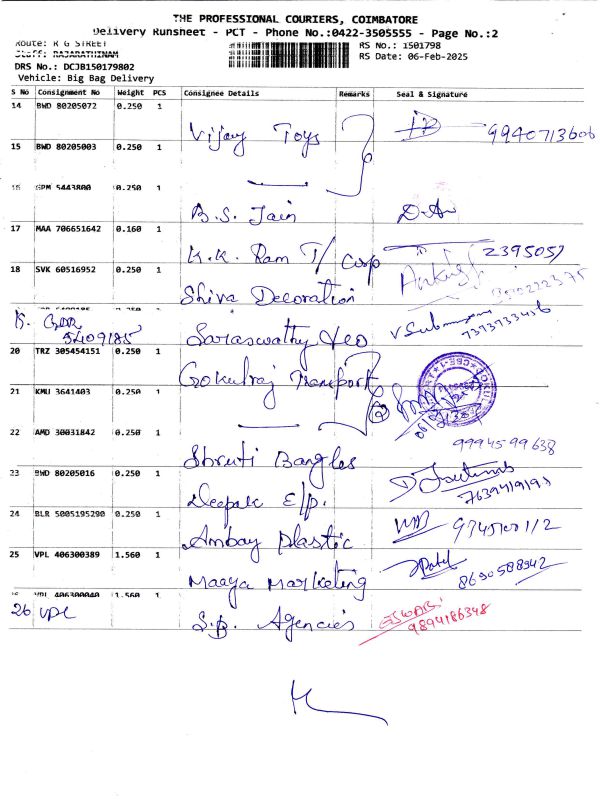 THE PROFESSIONAL COURIERS, COIMBATORE
Delivery Runsheet - PCT - Phone No.:0422-3505555 - Page No.:2
Route: R G STREET
RS No.: 1501798
Staff: RAJARATHINAM
RS Date: 06-Feb-2025
DRS No.: DCJB150179802
Vehicle: Big Bag Delivery
S No Consignment No Weight PCS Consignee Details Remarks Seal & Signature
14 BWD 80205072 0.250 1
Vijay Toys 9940713606
15 BWD 80205003 0.250 1
16 GPM 5443800 0.250 1
B.S. Jain
17 MAA 706651642 0.160 1
K.K. Ram T/ Corp 2395057
18 SVK 60516952 0.250 1
Shiva Decoration
5409185
Saraswathy Leo
20 TRZ 305454151 0.250 1
Gokulraj Transport
21 KMU 3641403 0.250 1
22 AMD 30031842 0.250 1
Shruti Bangles 9994599638
23 BWD 80205016 0.250 1
Deepak E/p.
24 BLR 5005195290 0.250 1
Ambay Plastic
25 VPL 406300389 1.560 1
Maaya Marketing 8690588942
VPL 406300040 1.560 1
26 VPL
S.B. Agencies ESWARI
9894186348